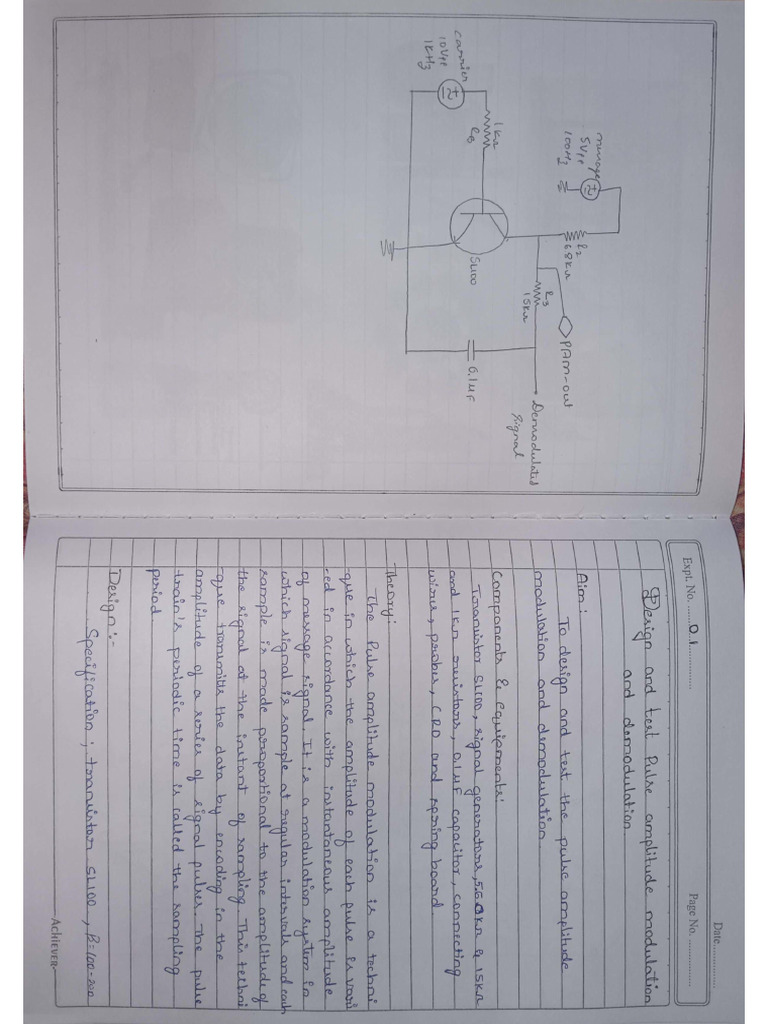 carrier
10Vpp
1KHz
1KΩ
RB
message
5Vpp
100Hz
R2
68KΩ
SL100
R3
15KΩ
PAM-out
0.1μF
Demodulated
signal
Date
Expt. No. 01
Page No.
Design and test Pulse amplitude modulation
and demodulation
Aim:
To design and test the pulse amplitude
modulation and demodulation
Components & equipments:
Transistor SL100, signal generators, 560KΩ & 15KΩ
and 1KΩ resistors, 0.1μF capacitor, connecting
wires, probes, CRO and spring board
Theory:
The Pulse amplitude modulation is a techni
que in which the amplitude of each pulse is vari
-ed in accordance with instantaneous amplitude
of message signal. It is a modulation system in
which signal is sample at regular intervals and each
sample is made proportional to the amplitude of
the signal at the instant of sampling. This techni
que transmits the data by encoding in the
amplitude of a series of signal pulses. The pulse
train's periodic time is called the sampling
period
Design:-
Specification; transistor SL100, β=100-200
ACHIEVER